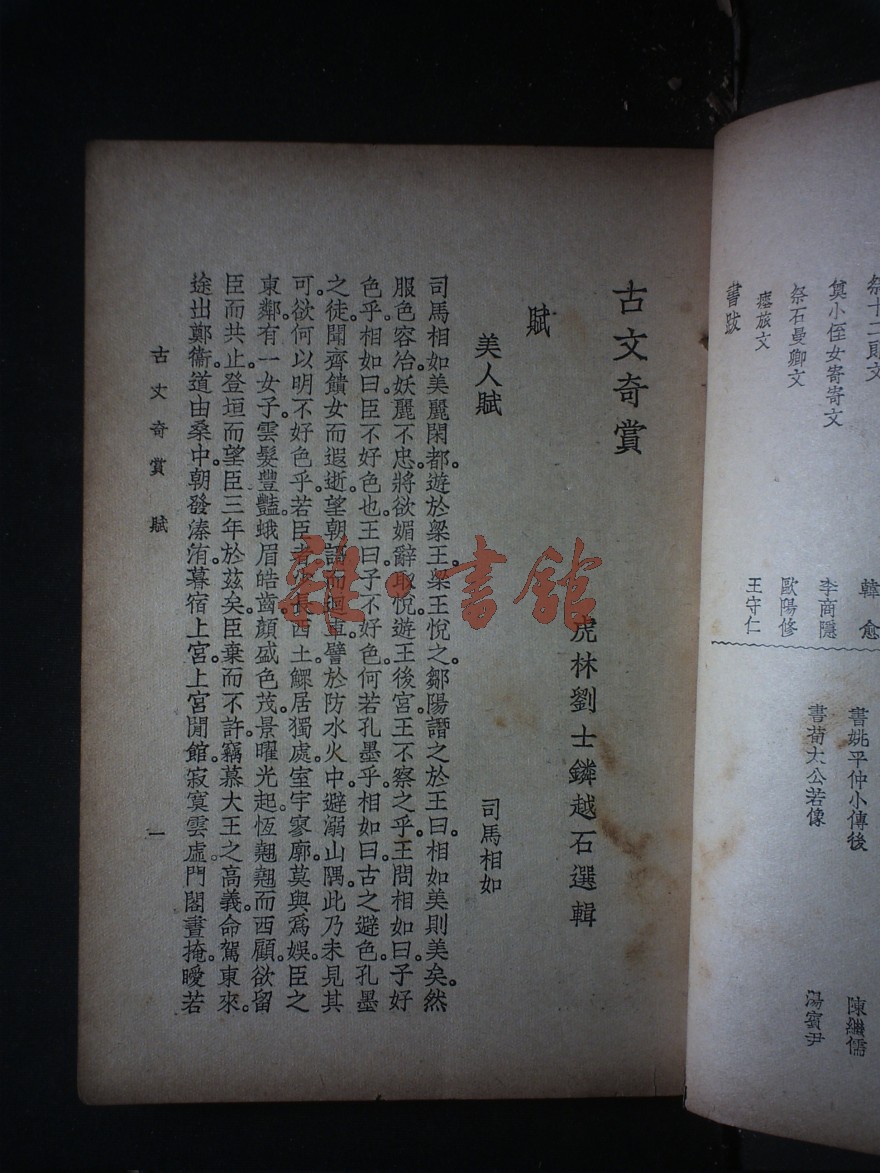 祭十二郎文　韓愈
奠小侄女寄寄文　李商隱
祭石曼卿文　歐陽修
瘞旅文　王守仁
書跋
書姚平仲小傳後　陳繼儒
書荀大公若像　湯賓尹
古文奇賞
虎林劉士鏻越石選輯
賦
美人賦　司馬相如
司馬相如美麗閑都。遊於梁王。梁王悅之。鄒陽譖之於王曰。相如美則美矣。然
服色容冶。妖麗不忠。將欲媚辭取悅。遊王後宮。王不察之乎。王問相如曰。子好
色乎。相如曰。臣不好色也。王曰。子不好色。何若孔墨乎。相如曰。古之避色。孔墨
之徒。聞齊饋女而遐逝。望朝謌而迴車。譬於防水火中。避溺山隅。此乃未見其
可欲。何以明不好色乎。若臣者。少長西土。鰥居獨處。室宇寥廓。莫與爲娛。臣之
東鄰。有一女子。雲髮豐豔。蛾眉皓齒。顏盛色茂。景曜光起。恆翹翹而西顧。欲留
臣而共止。登垣而望臣。三年於茲矣。臣棄而不許。竊慕大王之高義。命駕東來。
途出鄭衞。道由桑中。朝發溱洧。暮宿上宮。上宮閒館。寂寞雲虛。門閤晝掩。曖若
古文奇賞　賦　一
雜·書館